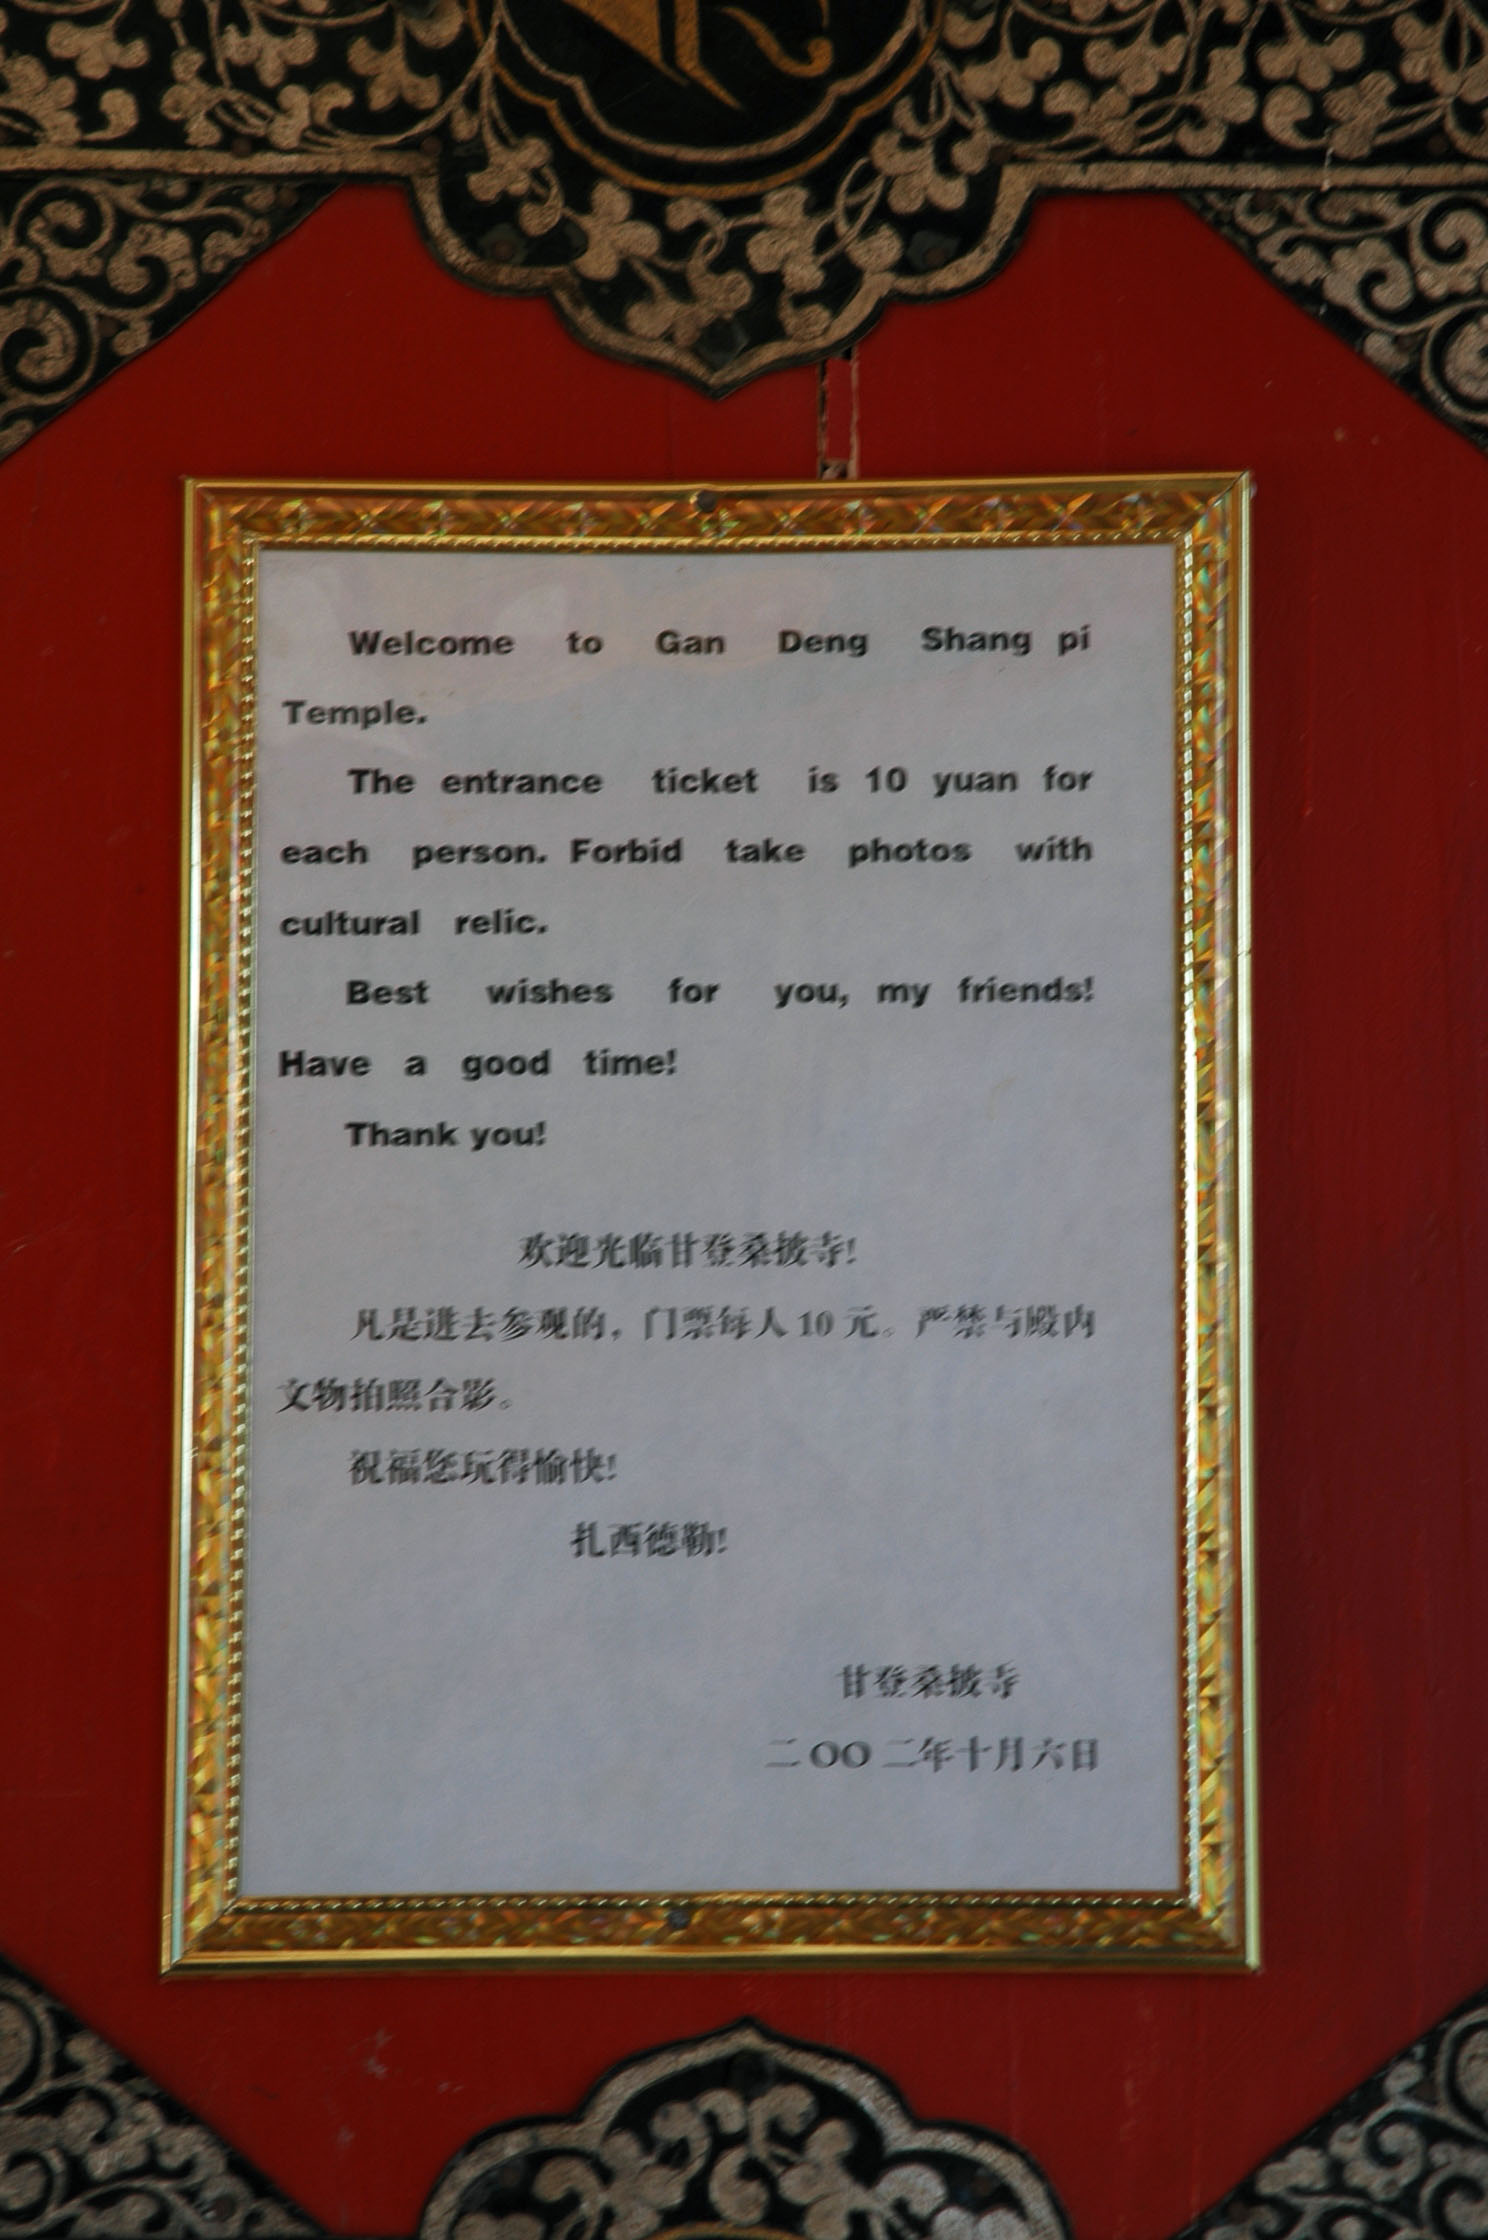 Welcome to Gan Deng Shang pi
Temple.
The entrance ticket is 10 yuan for
each person. Forbid take photos with
cultural relic.
Best wishes for you, my friends!
Have a good time!
Thank you!
欢迎光临甘登桑披寺!
凡是进去参观的，门票每人10元。严禁与殿内
文物拍照合影。
祝福您玩得愉快!
扎西德勒!
甘登桑披寺
二OO二年十月六日